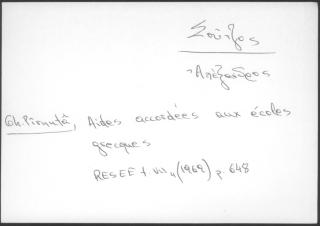 Σούτζος
Ἀλέξανδρος
Gh. Pirnută, Aides accordées aux écoles
grecques
RESEE t. VII (1969) p. 648